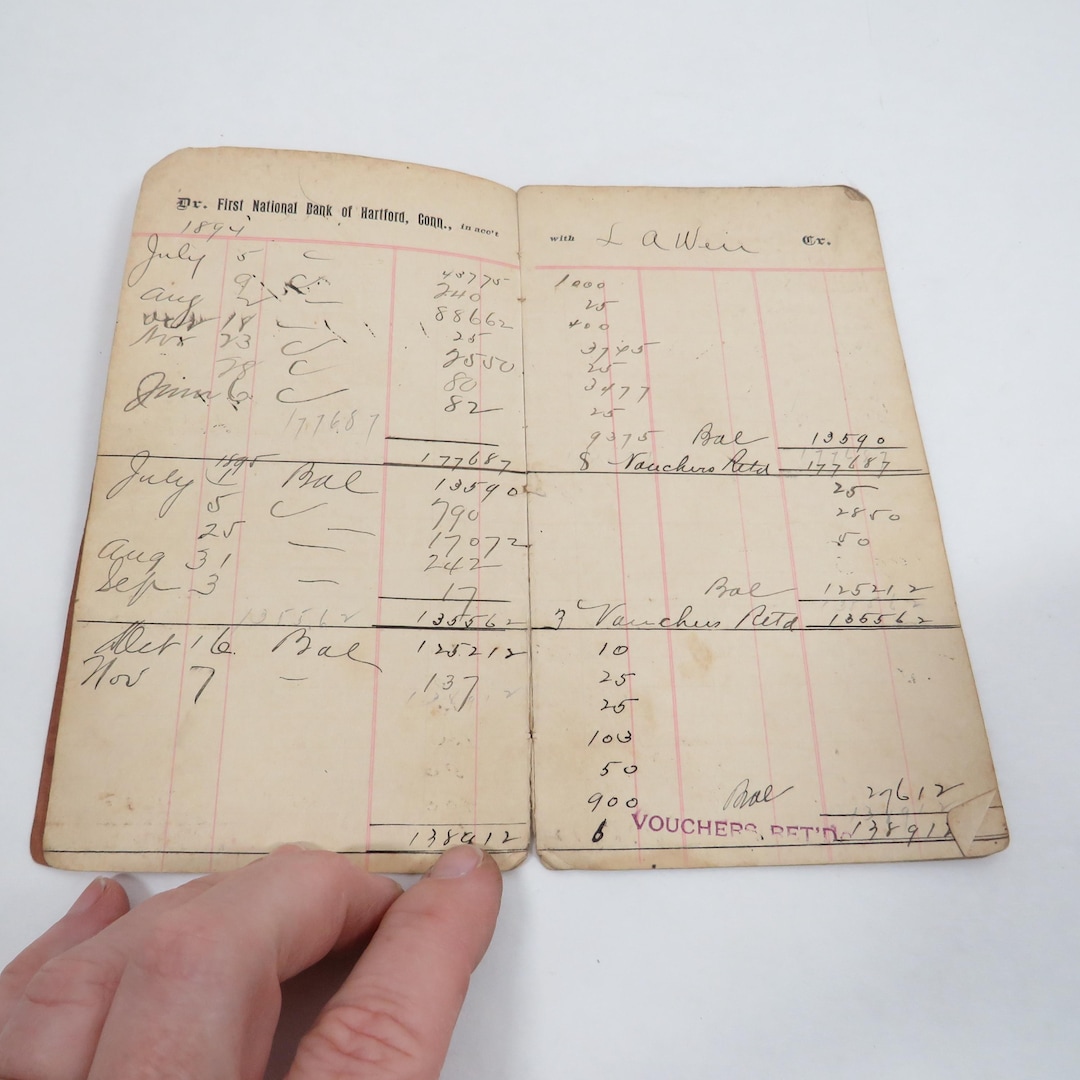 Dr. First National Bank of Hartford, Conn., in acc't
1894
July 5
43775
9 240
Aug 2 88662
18 25
Nov 23 2550
28 80
6 82
177687
177687
1895
July 1 Bal 13590
5 790
25 17072
Aug 31 242
Sep 3 17
135562
135562
Oct 16 Bal 125212
Nov 7 137
138912
with L A Weir Cr.
1000
25
400
3745
25
3477
25
9375 Bal 13590
8 Vouchers Retd 177687
25
2850
50
Bal 125212
3 Vouchers Retd 135562
10
25
25
103
50
900 Bal 27612
6 VOUCHERS RET'D. 138912